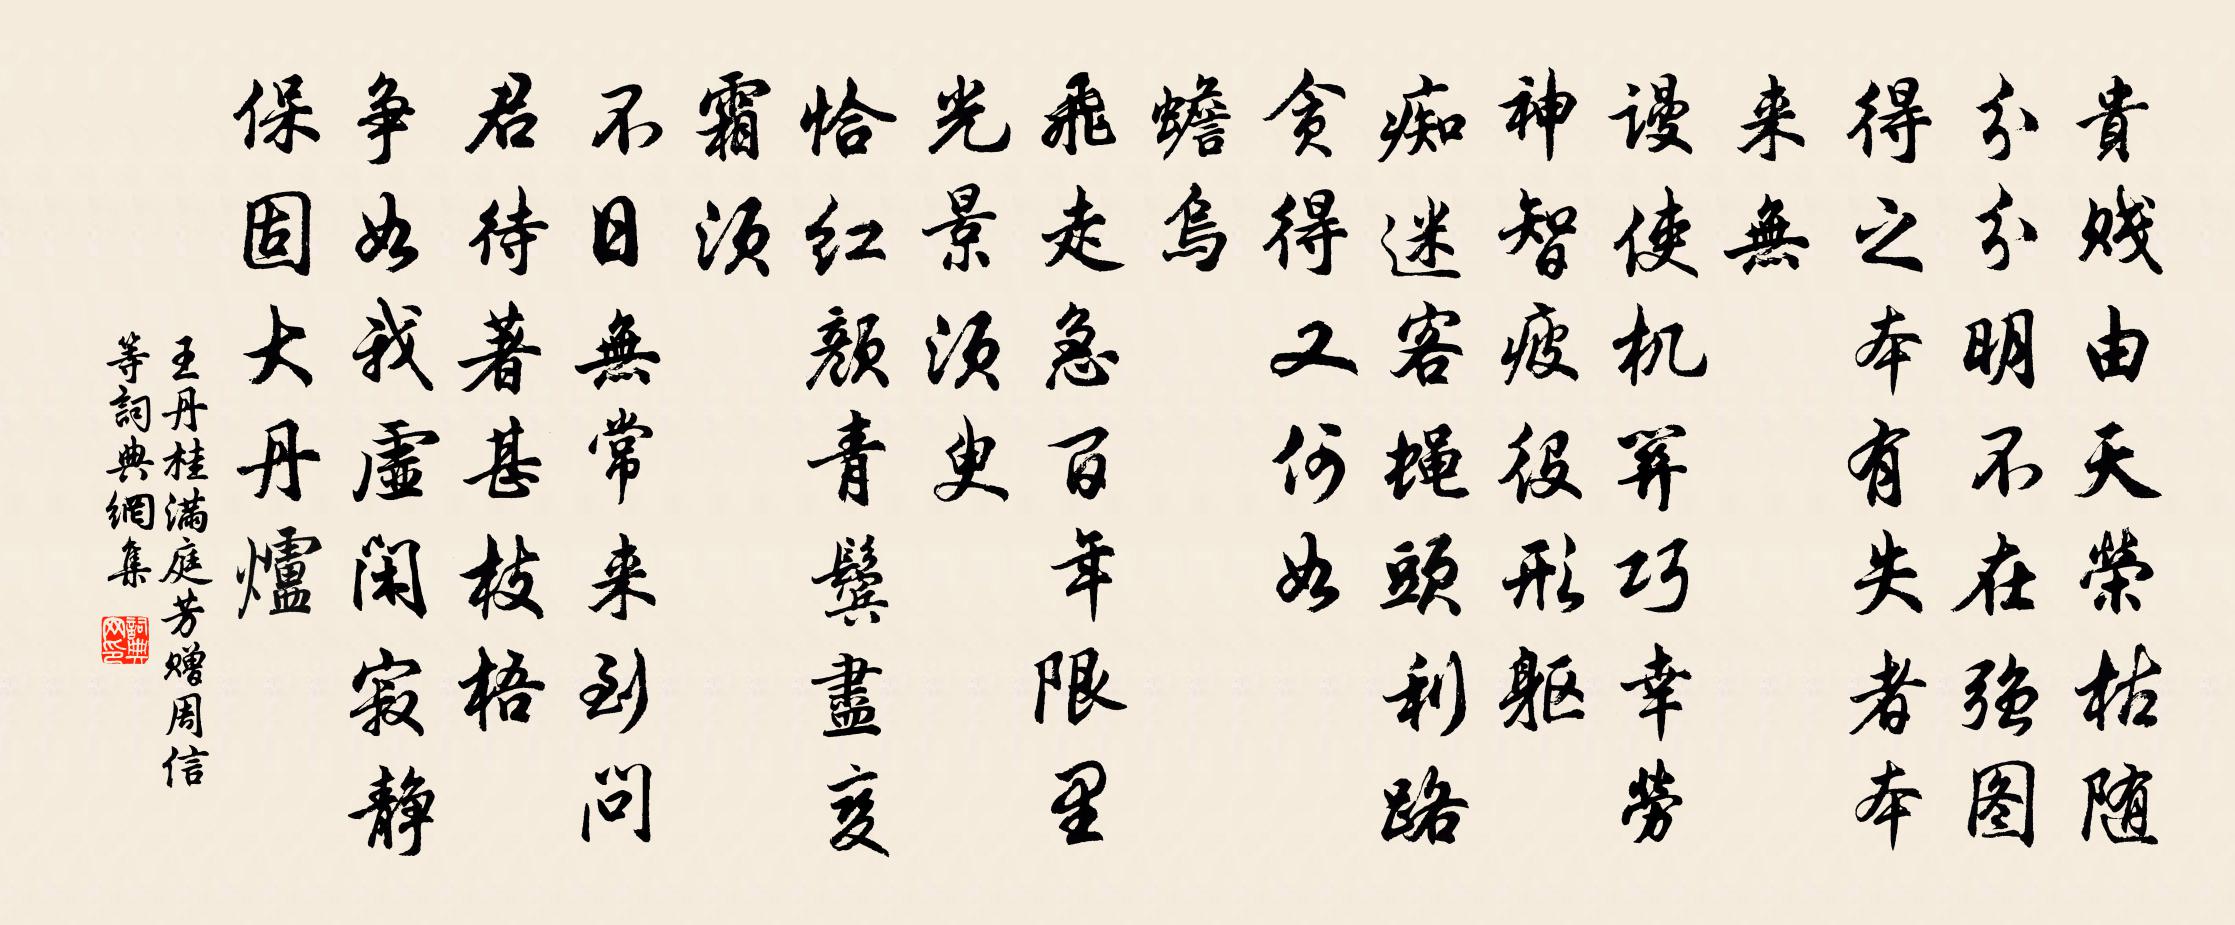 貴賤由天榮枯随
分分明不在强图
得之本有失者本
来無
謾使机筭巧幸勞
神智疲役形躯
痴迷客蝇頭利路
贪得又何如
蟾烏
飛走急百年限里
光景須臾
恰红顏青鬓盡变
霜須
不日無常来到问
君待著甚枝梧
争如我虚闲寂静
保固大丹爐
王丹桂满庭芳赠周信
等詞典網集
詞典网印